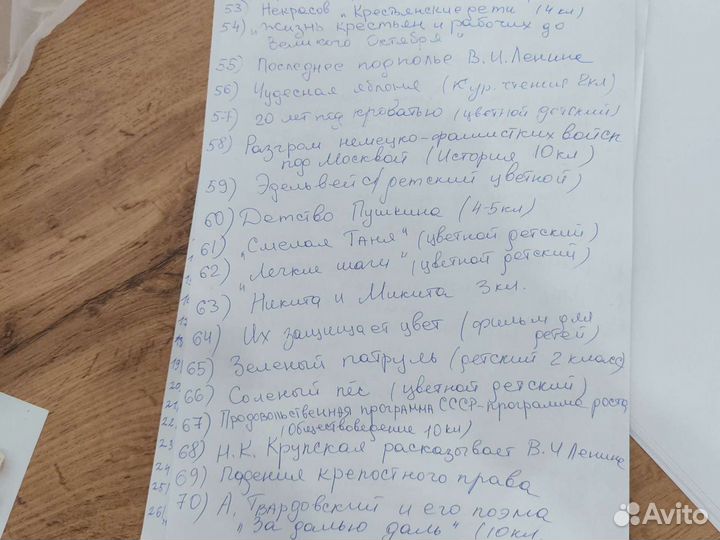 53) Некрасов „Крестьянские дети (4 кл)
54) „Жизнь крестьян и рабочих до
Великого Октября"
55) Последнее подполье В.И. Ленина
56) Чудесная яблоня (Кур. чтения 2кл)
57) 20 лет под кроватью (цветной детский)
58) Разгром немецко-фашистких войск
под Москвой (История 10кл)
59) Эдельвейс (детский цветной)
60) Детство Пушкина (4-5кл)
61) „Смелая Таня" (цветной детский)
62) „Легкие шаги" (цветной детский)
63) Никита и Микита 3кл.
64) Их защищает цвет (фильм для
детей)
65) Зеленый патруль (детский 2 класс)
66) Соленый пёс (цветной детский)
67) Продовольственная программа СССР-программа роста
(Обществоведение 10кл)
68) Н.К. Крупская рассказывает В.И Ленине
69) Падения крепостного права
70) А. Твардовский и его поэма
„За далью даль" (10кл
19)
20
21
22
23
24
25)
26)
Avito